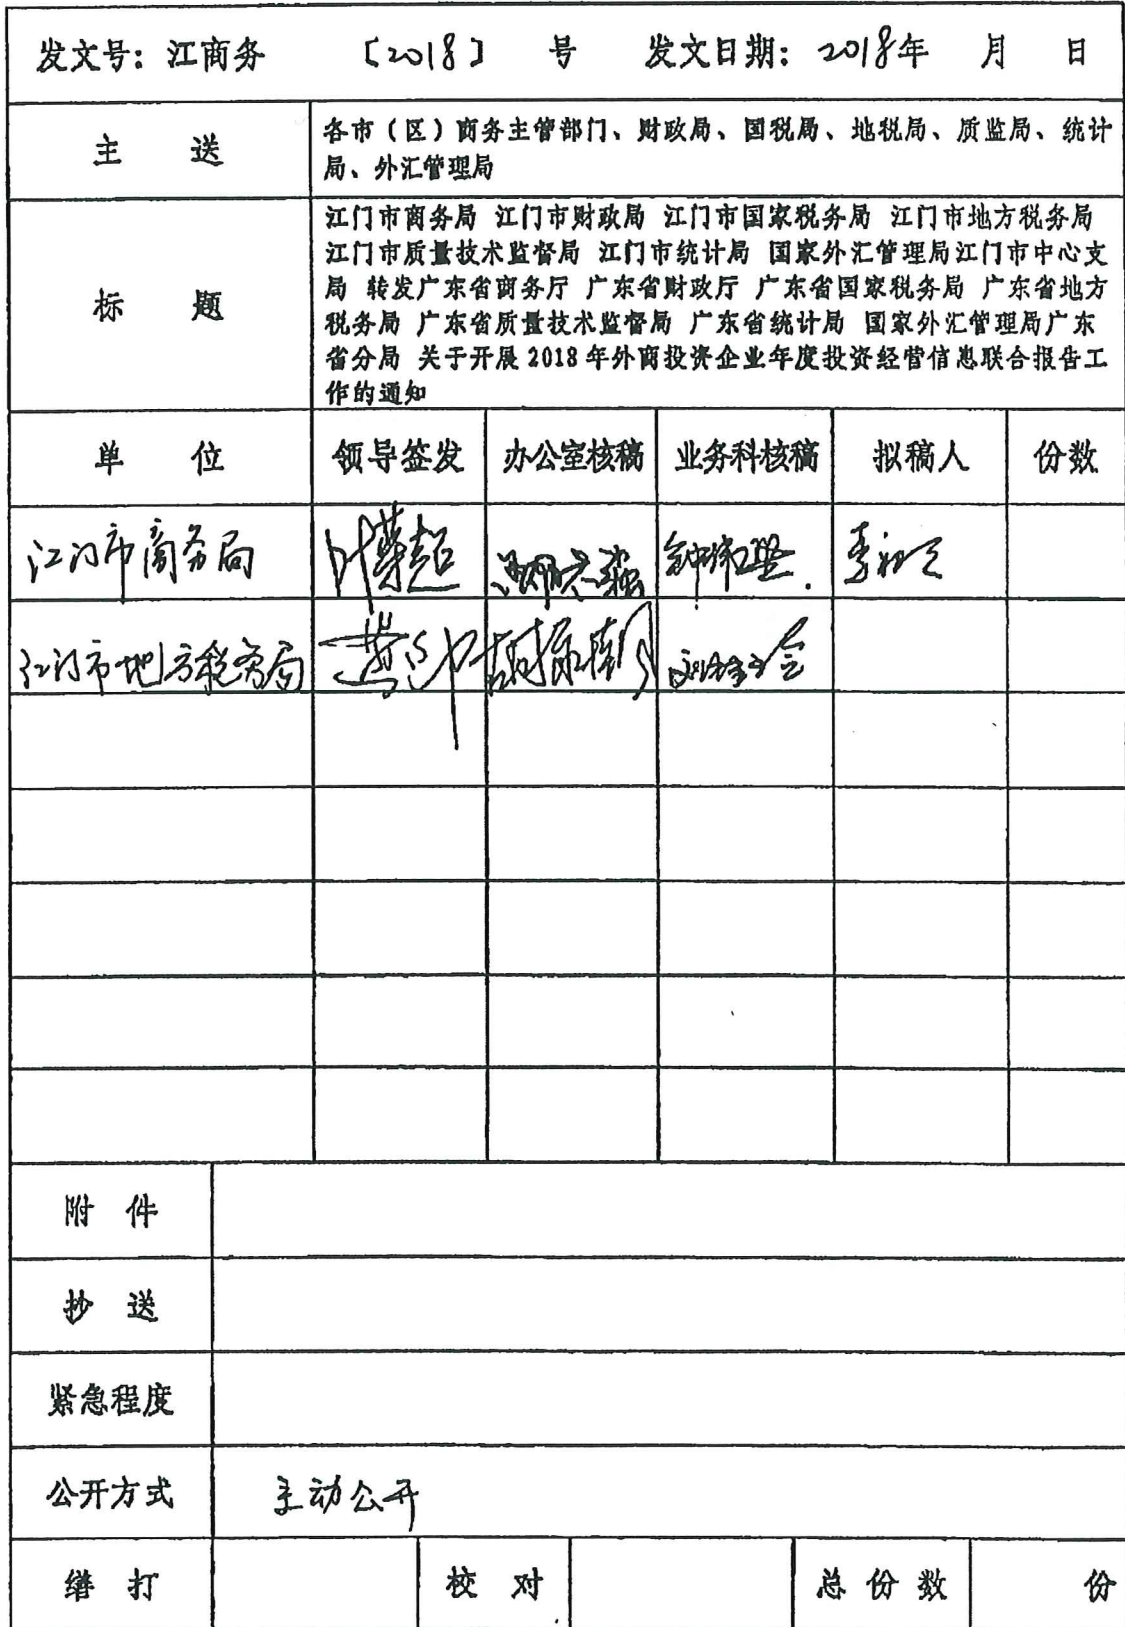 发文号：江商务 〔2018〕 号 发文日期：2018年 月 日
主 送
各市（区）商务主管部门、财政局、国税局、地税局、质监局、统计
局、外汇管理局
标 题
江门市商务局 江门市财政局 江门市国家税务局 江门市地方税务局
江门市质量技术监督局 江门市统计局 国家外汇管理局江门市中心支
局 转发广东省商务厅 广东省财政厅 广东省国家税务局 广东省地方
税务局 广东省质量技术监督局 广东省统计局 国家外汇管理局广东
省分局 关于开展2018年外商投资企业年度投资经营信息联合报告工
作的通知
单 位 领导签发 办公室核稿 业务科核稿 拟稿人 份数
江门市商务局 叶荣超
江门市地方税务局
附 件
抄 送
紧急程度
公开方式 主动公开
缮 打 校 对 总 份 数 份